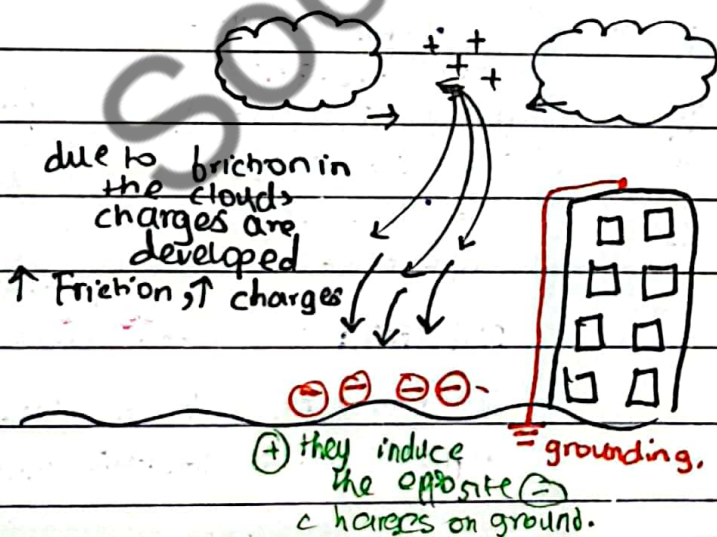 + +
+ +
due to friction in
the clouds
charges are
developed
↑ Friction, ↑ charges
⊖ ⊖ ⊖ ⊖
⊕ they induce
the opposite ⊖
charges on ground.
grounding.